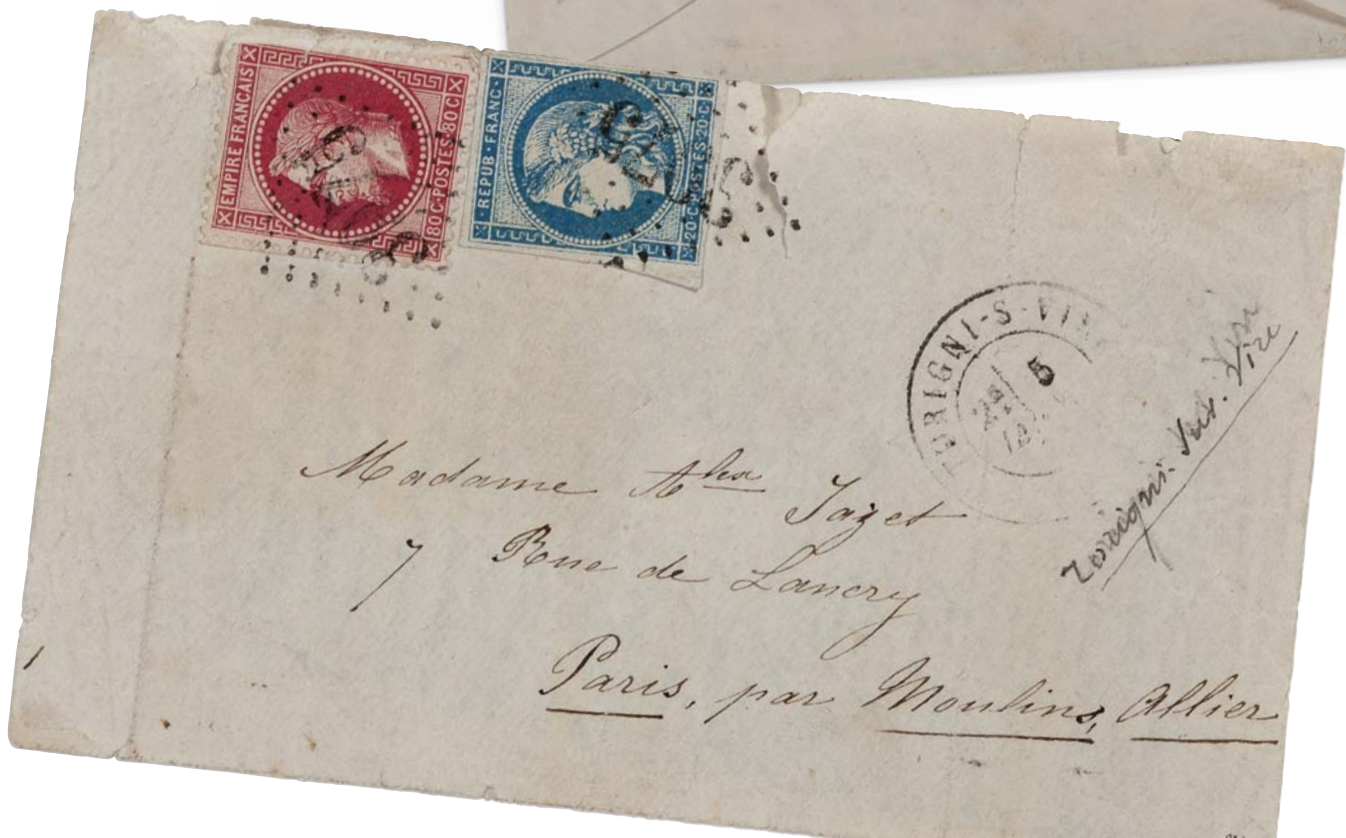 EMPIRE FRANÇAIS
80 C·POSTES·80 C
· REPUB · FRANC ·
20·C·POSTES·20·C
RIGNI-S-VI
5
Madame Alex Jazet
7 Rue de Lancry
Paris, par Moulins, Allier